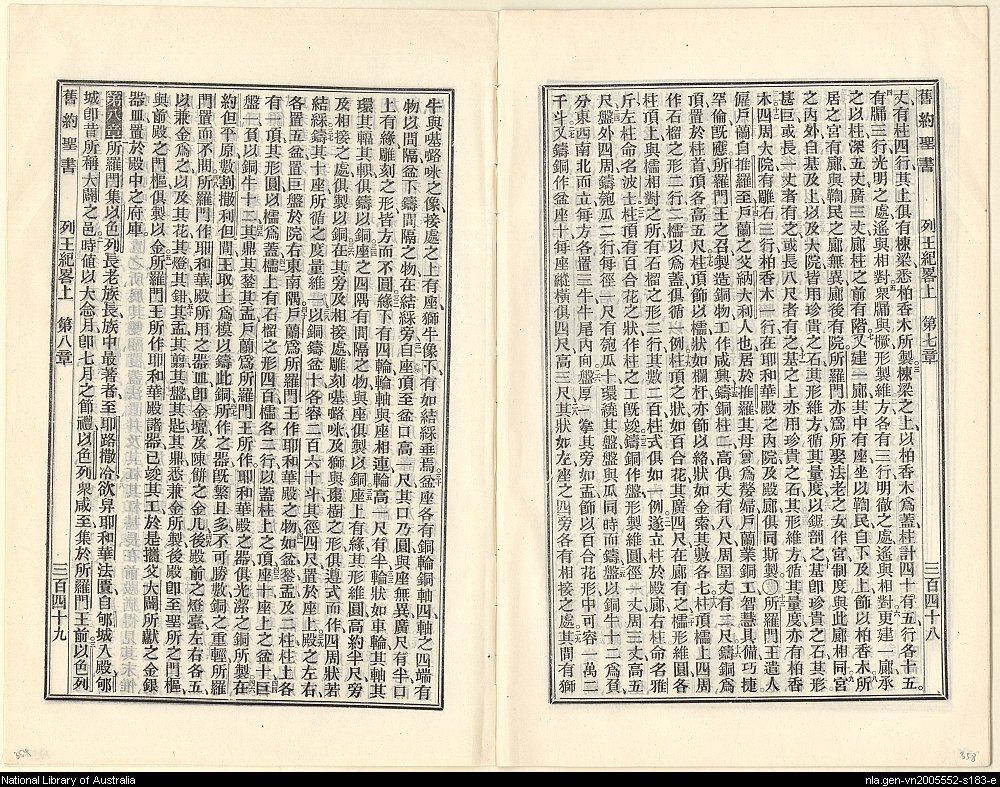 舊約聖書　列王紀畧上　第七章　三百四十八
丈有柱四行其上俱有棟梁悉柏香木所製棟梁之上以柏香木爲蓋柱計四十有五行各十五
有牖三行光明之處遙與相對衆牖與橛形製維方各有三行明徹之處遙與相對更建一廊承
之以柱深五丈廣三丈廊柱之前有階又建一廊其中有座坐以鞫民自下及上飾以柏香木所
居之宮有廊與鞫民之廊無異廊後有院所羅門亦爲所娶法老之女作宮制度與此廊相同宮
之內外自基及上以及大院皆用珍貴之石其形維方循其量度以鋸剖之基卽珍貴之石其形
甚巨或長一丈者有之或長八尺者有之基之上亦用珍貴之石其形維方循其量度亦有柏香
木四周大院有雕石三行柏香木一行在耶和華殿之內院及殿廊俱同斯製〇所羅門王遣人
僱戶蘭自推羅至戶蘭之父納大利人也居於推羅其母曾爲嫠婦戶蘭業銅工智慧具備巧捷
罕倫旣應所羅門王之召製造銅物工作咸興鑄銅柱二高俱丈有八尺周圍丈有二尺鑄銅爲
頂置於柱首頂各高五尺柱頂飾以檽狀如欄杆亦飾以絡狀如金索其數各七柱頂檽上四周
作石榴之形二行二檽以爲蓋俱循一例柱頂之狀如百合花其廣四尺在廊有之檽形維圓各
柱頂上與檽相對之所有石榴之形二行其數二百柱式俱如一例遂立柱於殿廊右柱命名雅
斤左柱命名波士柱頂有百合花之狀作柱之工旣竣鑄銅作盤形製維圓徑一丈周三丈高五
尺盤外四周鑄匏瓜二行每徑一尺有匏瓜十環繞其盤與瓜同時而鑄盤以銅牛十二爲負
分東西南北而立每方各置三牛牛尾內向盤厚一掌其旁如盂飾以百合花形中可容一萬二
千斗又鑄銅作盆座十每座縱橫俱四尺高三尺其狀如左座之四旁各有相接之處其間有獅
358
舊約聖書　列王紀畧上　第八章　三百四十九
牛與𠼻㗉咪之像接處之上有座獅牛像下有如結綵垂焉盆座各有銅輪銅軸四軸之四端有
物以間隔盆下鑄間隔之物在結綵旁自座頂至盆口高一尺其口乃圓與座無異廣尺有半口
上有緣雕刻之形皆方而不圓緣下有四輪輪軸與座相連輪高一尺有半輪狀如車輪其軸其
環其輻其軹俱鑄以銅座之四隅有間隔之物與座俱製以銅座上有緣其形維圓高約半尺旁
及相接之處俱製以銅在其旁及相接處雕刻𠼻㗉咪及獅與棗樹之形俱遵式而作四周狀若
結綵鑄其十座所循之度量維一以銅鑄盆十各容二百六十斗其徑四尺置於座上殿之左右
各置五盆置巨盤於院右東南隅戶蘭爲所羅門王作耶和華殿之物如盆鍫盂及二柱柱上各
有一頂其形圓以檽爲蓋檽上有石榴之形四百檽各二行以蓋柱上之頂座十座上之盆十巨
盤一負以銅牛十二其鼎其鍫其盂戶蘭爲所羅門王所作耶和華殿之器俱光潔之銅所製在
約但平原數割撒利但間王取土爲模以鑄此銅所作之器旣繁且多不可勝數銅之重輕所羅
門置而不問所羅門作耶和華殿所用之器皿卽金壇及陳餅之金几後殿前之燈臺左右各五
以兼金爲之以及其花其燈其鉗其盂其翦其盤其匙其鼎悉兼金所製後殿卽至聖所之門樞
與前殿之門樞俱製以金所羅門王所作耶和華殿諸器已竣其工於是攜父大闢所獻之金銀
器皿置於殿中之府庫
第八章所羅門集以色列長老族長族中最著者至耶路撒冷欲舁耶和華法匱自郇城入殿郇
城卽昔所稱大闢之邑時値以大念月卽七月之節禮以色列衆咸至集於所羅門王前以色列
359
National Library of Australia
nla.gen-vn2005552-s183-e